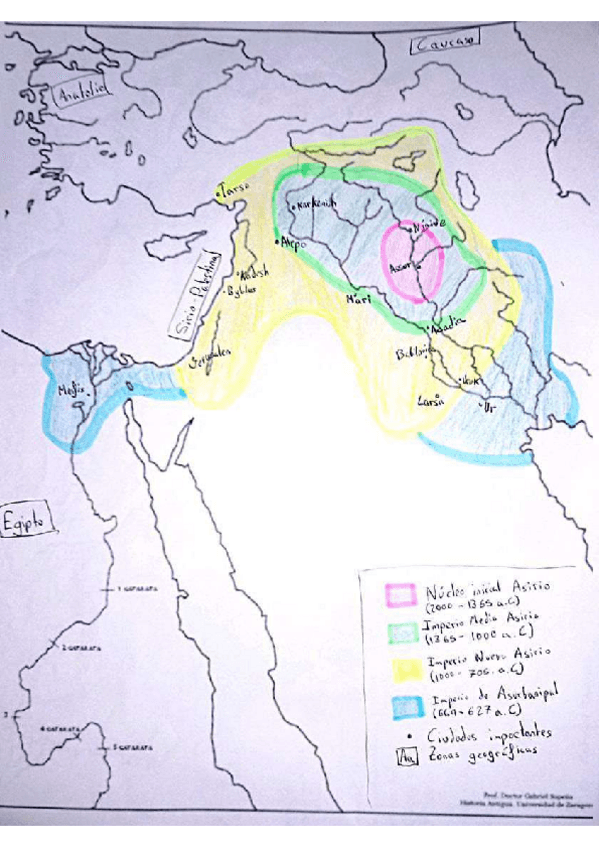 Caucaso
Anatolia
Tarso
Karkemish
Ninive
Assur
Alepo
Kadish
Byblos
Siria-Palestina
Mari
Acadia
Babilonia
Jerusalen
Uruk
Larsa
Ur
Menfis
Egipto
1 CATARATA
2 CATARATA
3
4 CATARATA
5 CATARATA
Núcleo inicial Asirio
(2000 - 1365 a.C)
Imperio Medio Asirio
(1365 - 1000 a.C)
Imperio Nuevo Asirio
(1000 - 705 a.C)
Imperio de Asurbanipal
(669 - 627 a.C)
Ciudades importantes
Aa Zonas geográficas
Prof. Doctor Gabriel Sopeña
Historia Antigua. Universidad de Zaragoza